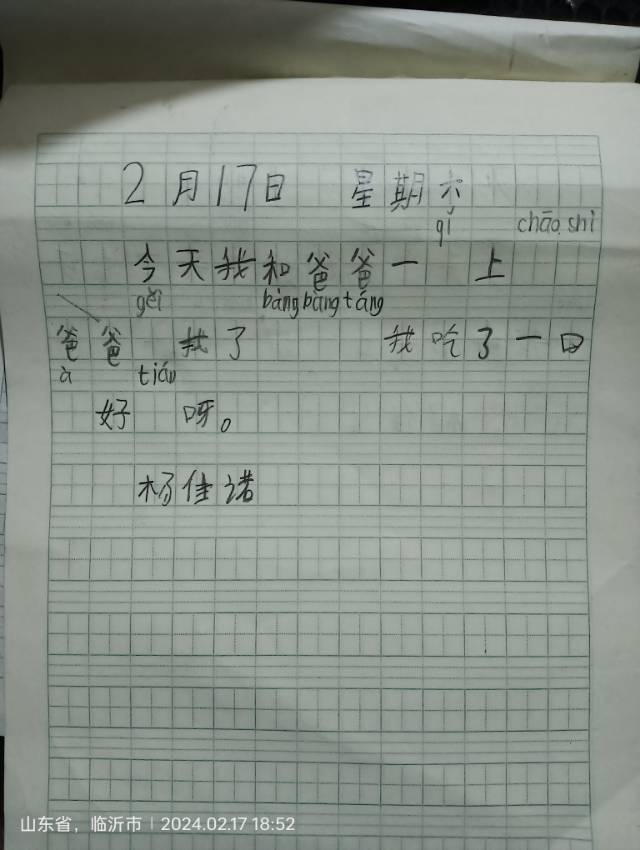 2月17日 星期六
qǐ chāo shì
今天我和爸爸一 上
gěi bàng bàng táng
爸爸 我了 我吃了一口
à tián
好 呀。
杨佳诺
山东省，临沂市 | 2024.02.17 18:52